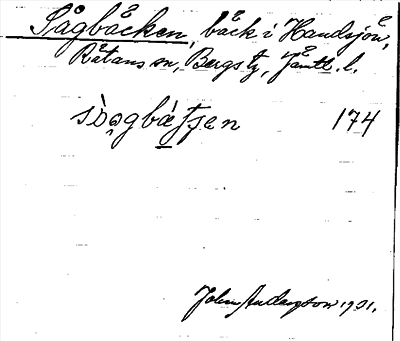 Sågbäcken, bäck i Handsjön,
Rätans sn, Bergs tg, Jämtl. l.
sò̀ǫgbàt̠ʃen 174
John Andersson 1901.